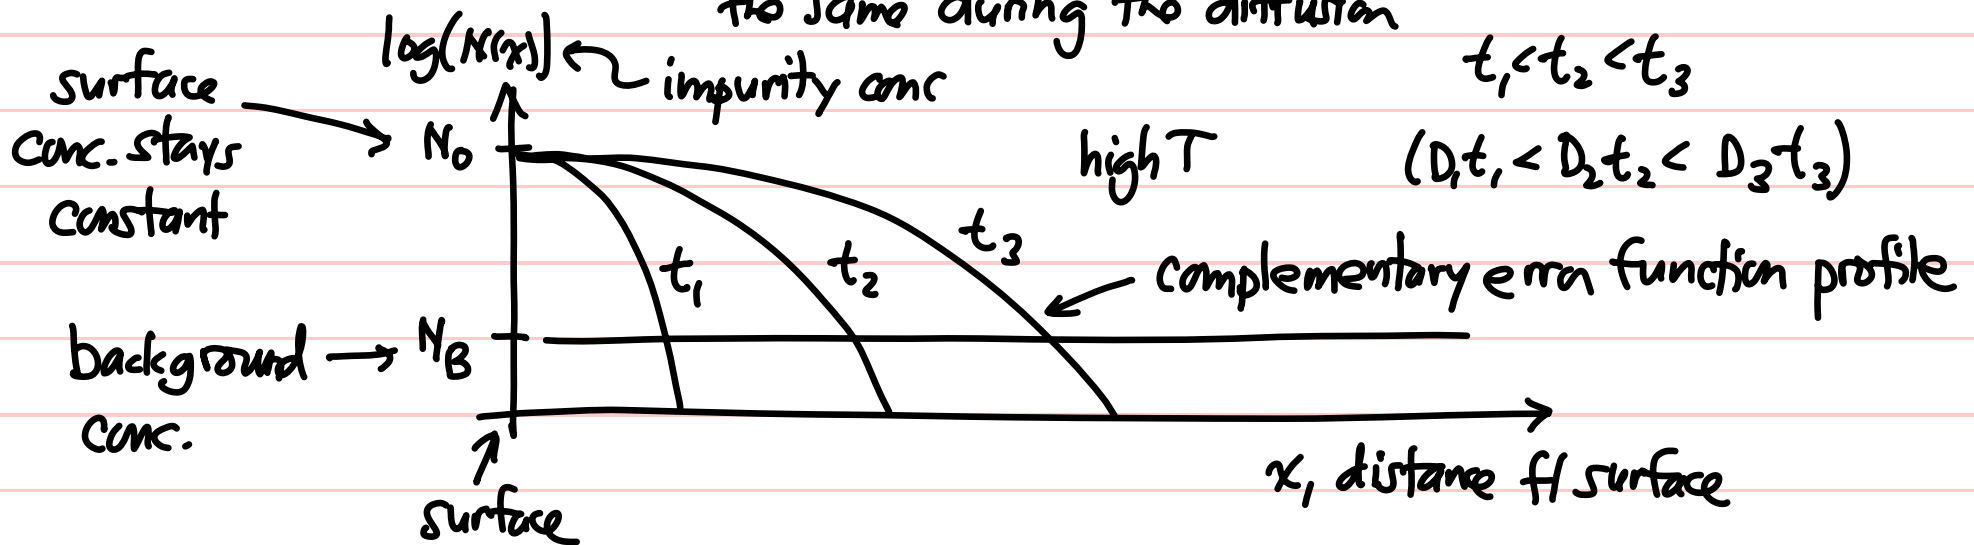 the same during the diffusion
log(N(x))
impurity conc
t₁<t₂<t₃
surface
conc. stays
constant
N₀
high T
(D₁t₁ < D₂t₂ < D₃t₃)
t₁
t₂
t₃
complementary error function profile
background
conc.
N_B
x, distance f/ surface
surface